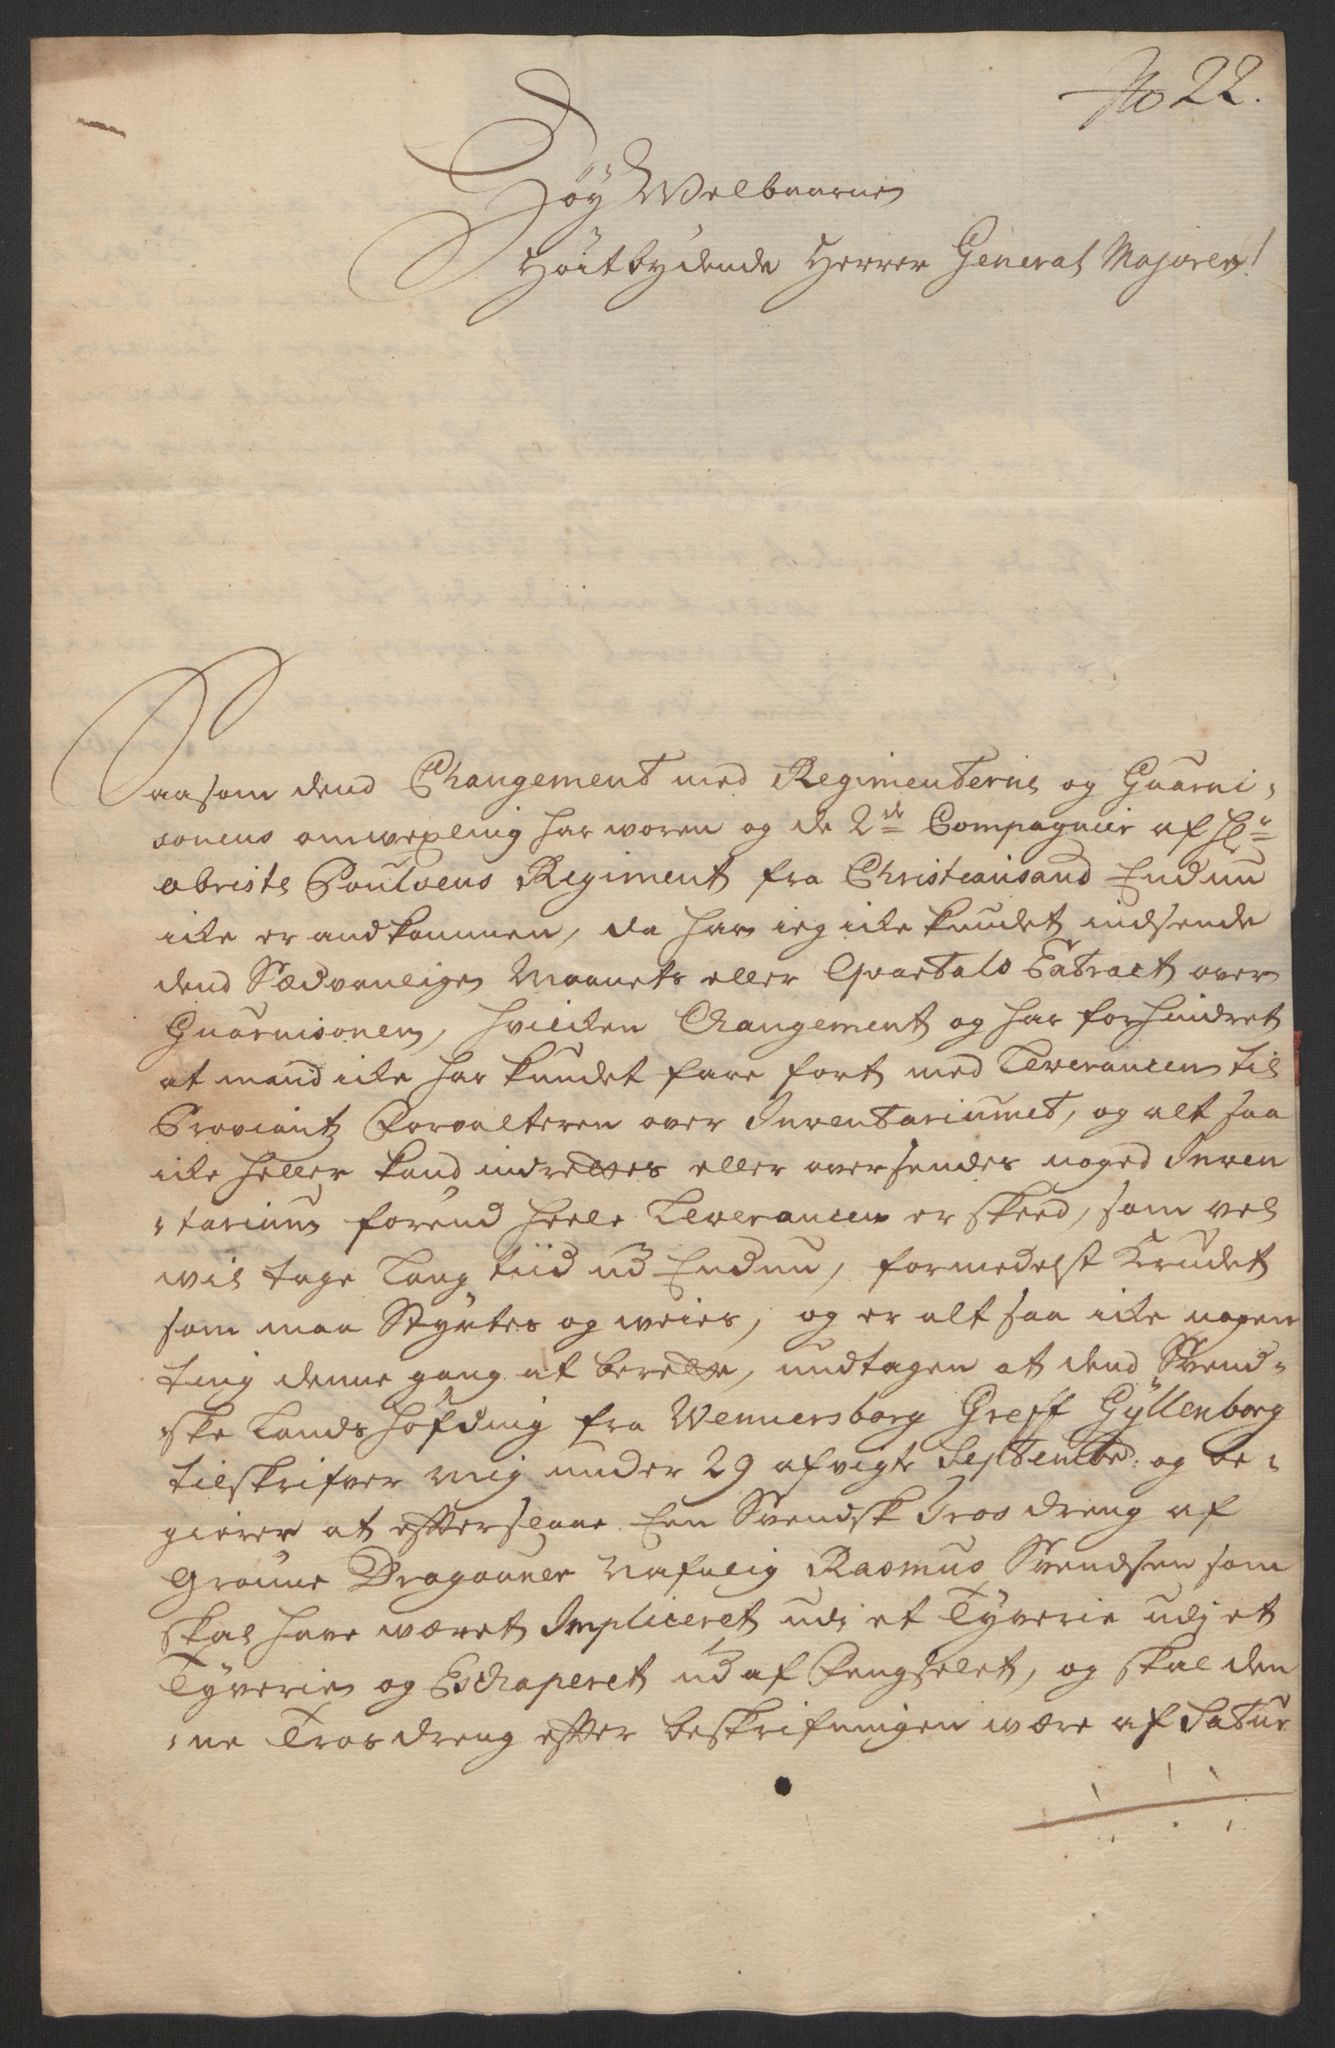 No 22.
Høy Welbaarne
Høitbydende Herrer General Majoren!
Saasom dend Changement med Regimenterne og Guarni,
sonens omvexling har woren og de 2de Compagnier af Hr
obriste Poulsens Regiment fra Christiansand Endnu
icke er andkommen, da har ieg icke kundet indsende
dend Sædvanlige Maanets eller Qvartals Extract over
Guarnisonen, hvilcken Changement og har forhindret
at mand icke har kundet fare fort med Leverancen til
Proviantz Forvalteren over Inventariumet, og alt saa
icke heller kand indrettes eller oversendes noged Inven
,tarium førend heele Leverancen er skeed, som vel
wil tage Lang tiid ud Endnu, formedelst Krudet
som maa Styrtes og weies, og er alt saa icke nogen
ting denne gang at berette, undtagen at dend Svend,
ske Landshøfding fra Wennersborg Greff Gyllenborg
tilskrifver mig under 29 afvigte Septembr: og be,
gierer at efterslaae Een Svendsk Trosdreng af
Grønne Dragouner Nafnlig Rasmus Svendsen som
skal have wæret Impliceret udj et Tyverie udj et
Tyverie og Echaperet ud af Fengselet, og skal den
,ne Trosdreng efter beskrifningen wære af Statur